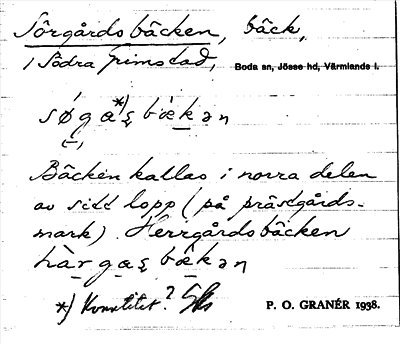 Sörgårdsbäcken, bäck,
i Södra Grimstad, Boda sn, Jösse hd, Värmlands l.
Bäcken kallas i norra delen
av sitt lopp (på prästgårds-
mark). Herrgårdsbäcken
*) Kvantitet?
P. O. GRANÉR 1938.